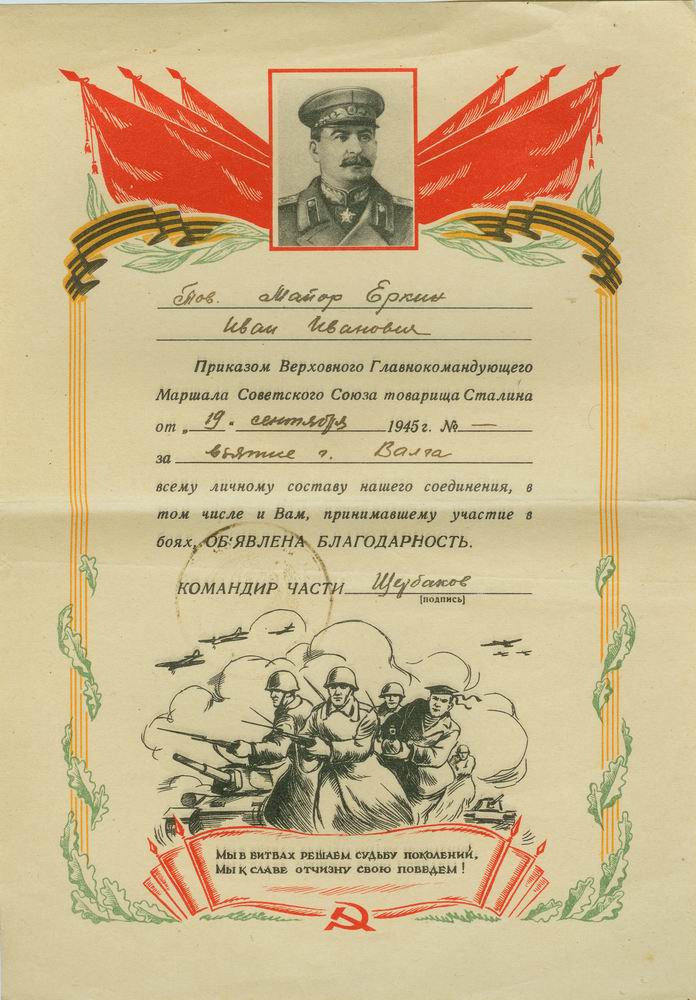 Тов. Майор Еркин
Иван Иванович
Приказом Верховного Главнокомандующего
Маршала Советского Союза товарища Сталина
от „19“ сентября 1945 г. № —
за взятие г. Валга
всему личному составу нашего соединения, в
том числе и Вам, принимавшему участие в
боях, ОБ‘ЯВЛЕНА БЛАГОДАРНОСТЬ.
КОМАНДИР ЧАСТИ Щербаков
[подпись]
Мы в битвах решаем судьбу поколений,
Мы к славе отчизну свою поведем!